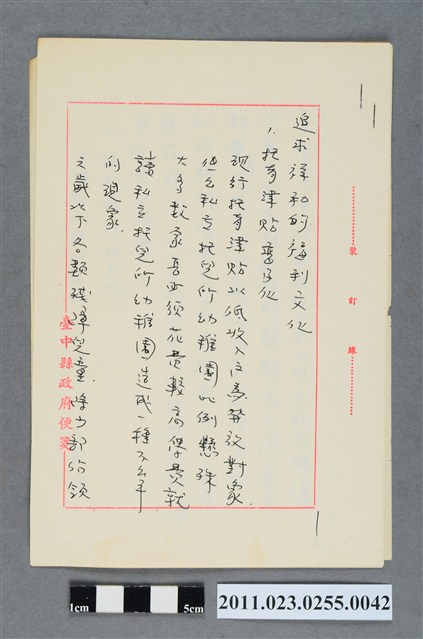 裝訂線
追求祥和的福利文化
1、托育津貼普及化
現行托育津貼以低收入戶為發放對象.
但公私立托兒所幼稚園比例懸殊
大多數家長必須花費較高學費就
讀私立托兒所幼稚園造成一種不公平
的現象.
六歲以下各類殘障兒童.除少部份領
臺中縣政府便箋
1cm
5cm
2011.023.0255.0042